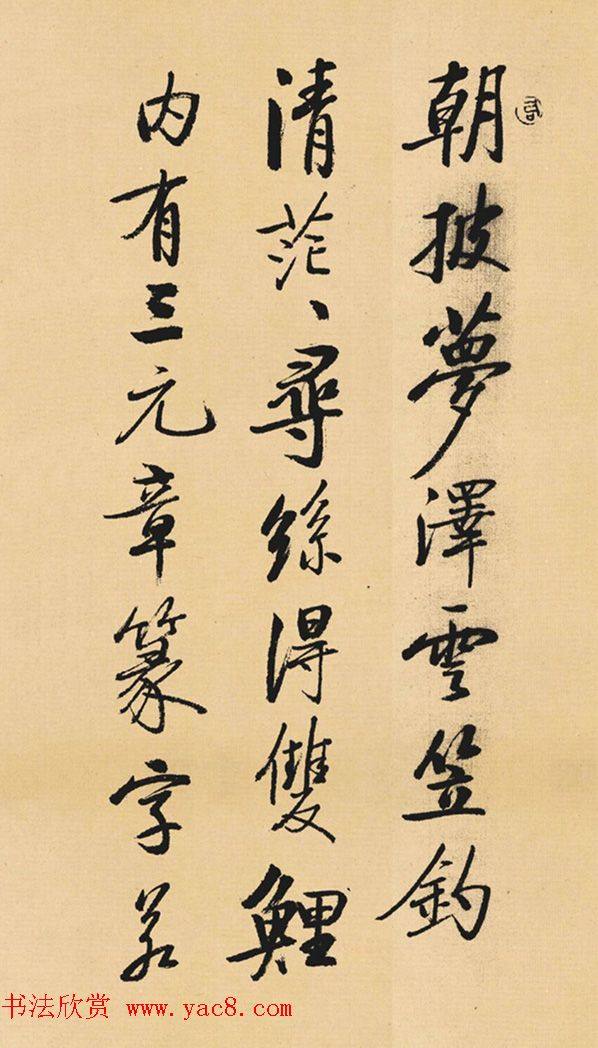 朝披夢澤雲笠釣
清茫〻尋絲得雙鯉
内有三元章篆字若
书法欣赏 www.yac8.com